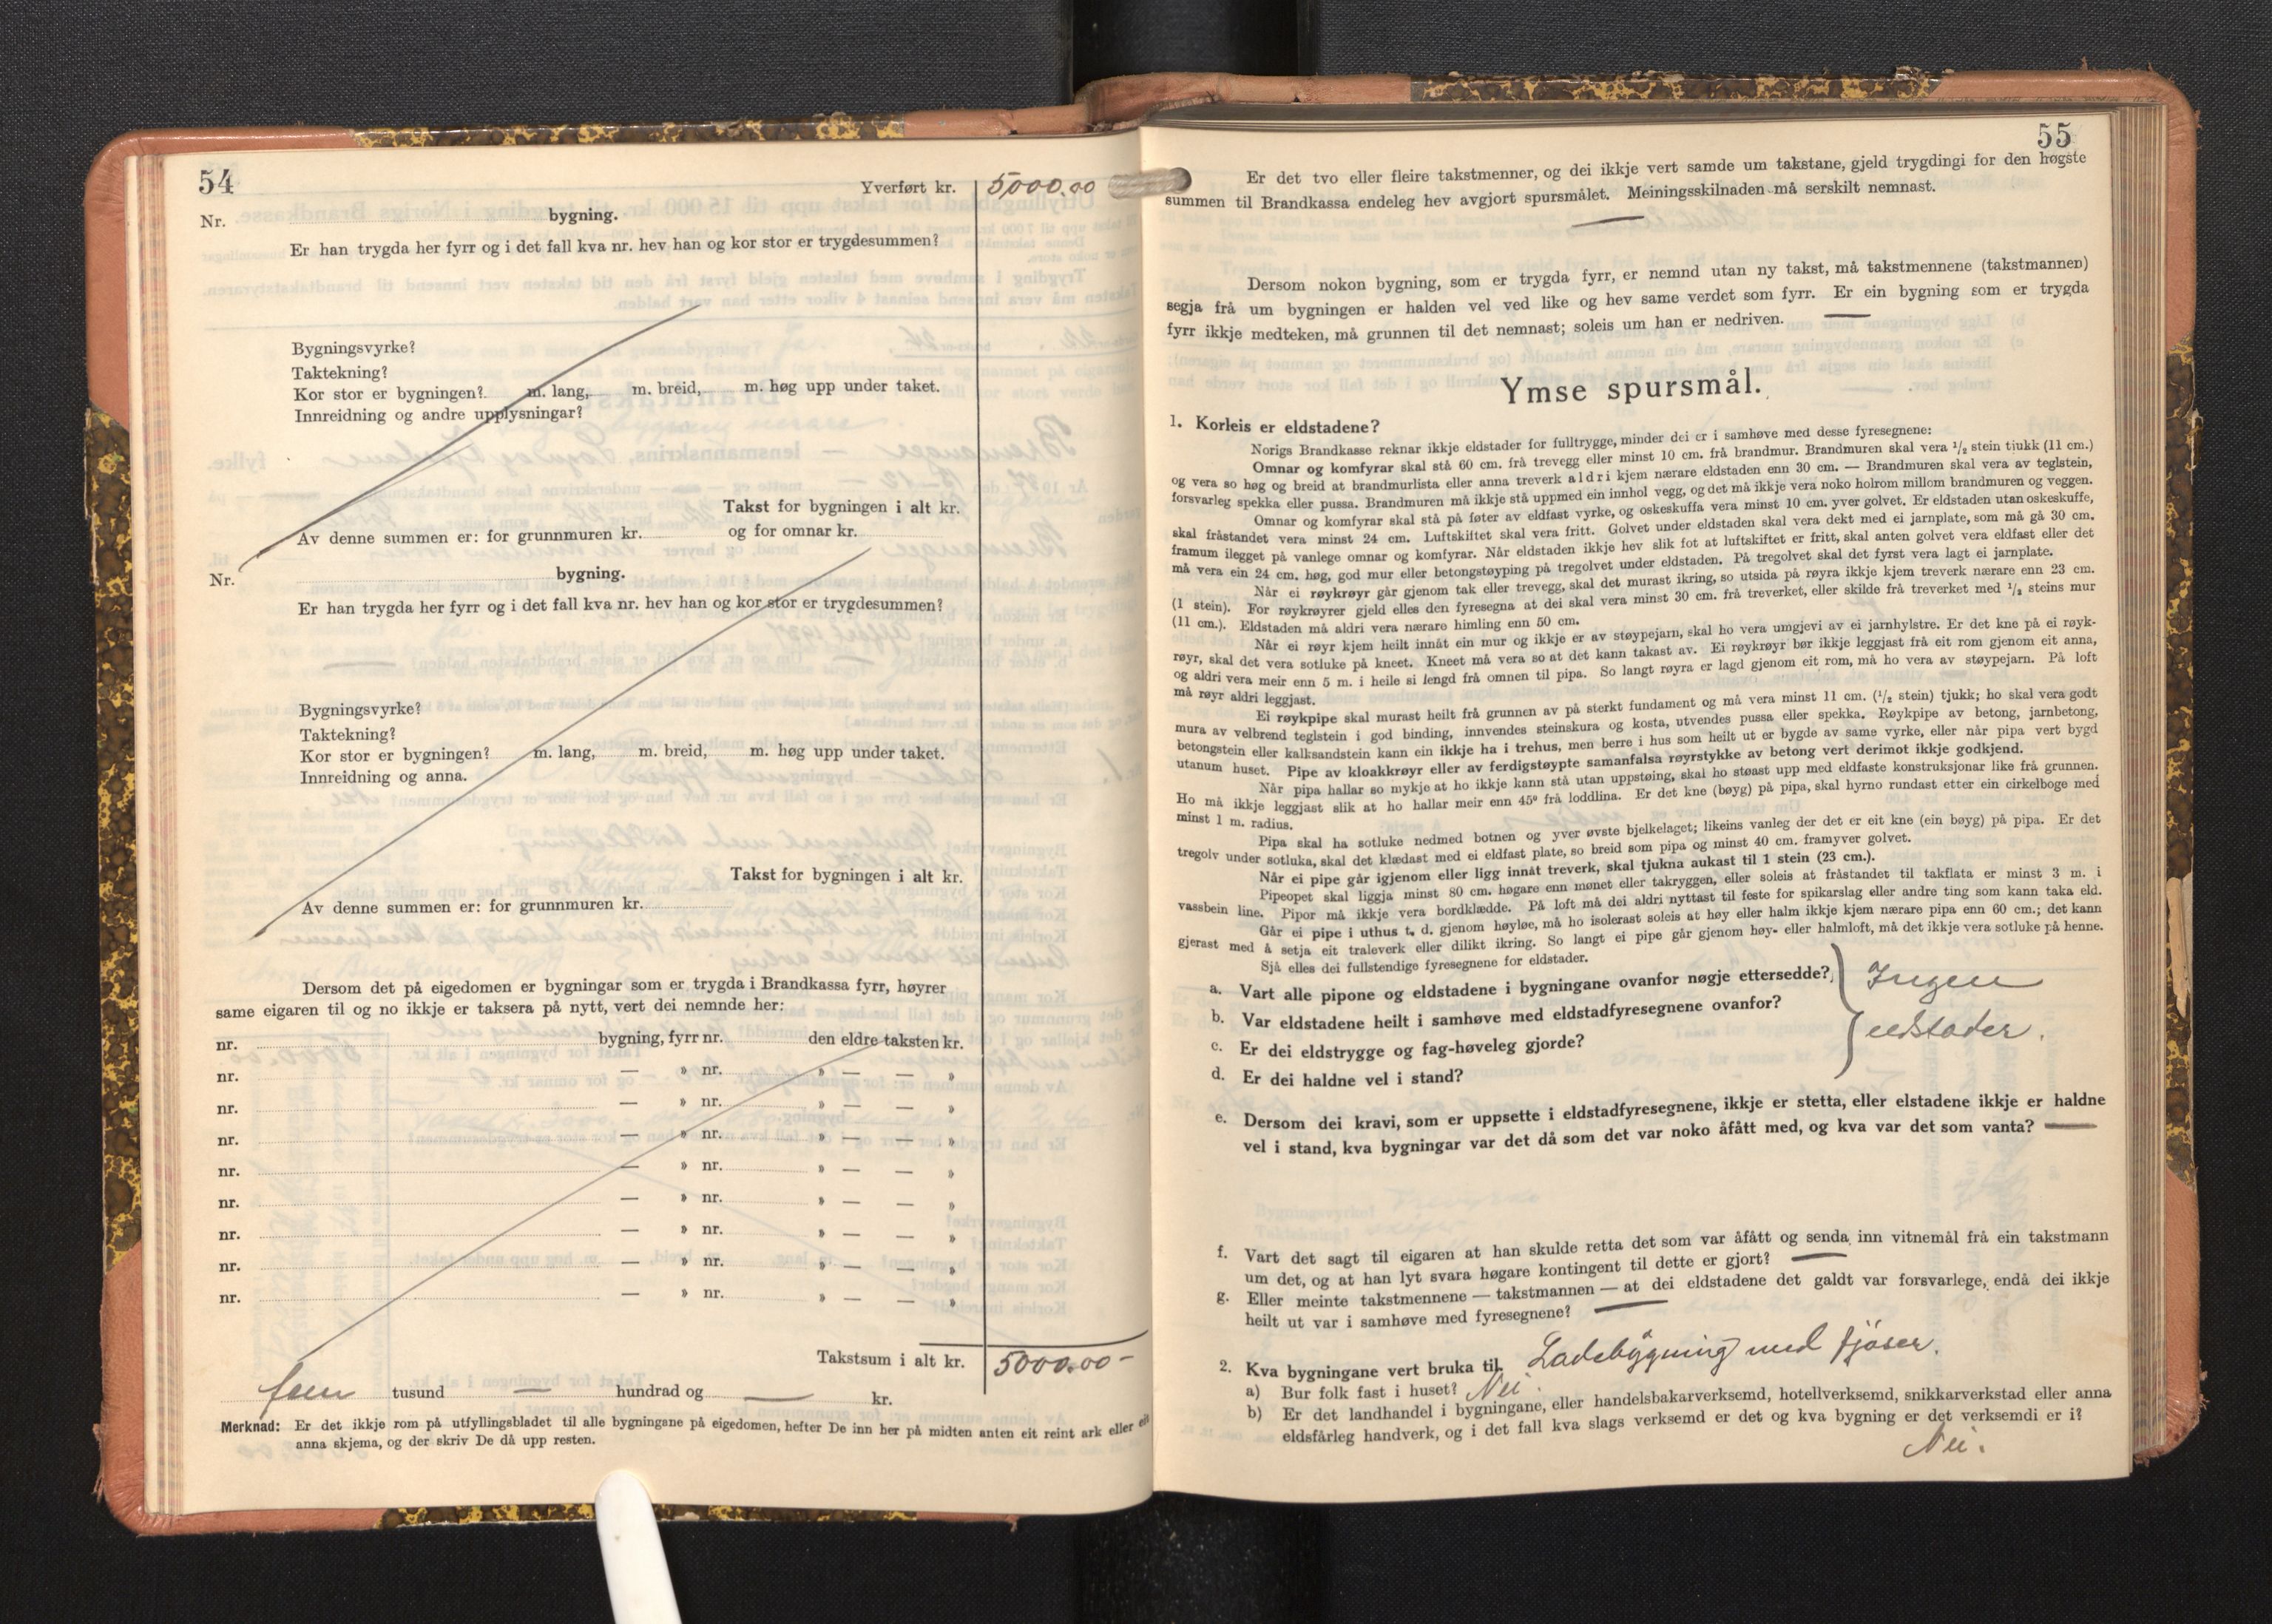 54
Yverført kr. 5000.00
Nr. bygning.
Er han trygda her fyrr og i det fall kva nr. hev han og kor stor er trygdesummen?
Bygningsvyrke?
Taktekning?
Kor stor er bygningen? m. lang, m. breid, m. høg upp under taket.
Innreidning og andre upplysningar?
Takst for bygningen i alt kr.
Av denne summen er: for grunnmuren kr. og for omnar kr.
Nr. bygning.
Er han trygda her fyrr og i det fall kva nr. hev han og kor stor er trygdesummen?
Bygningsvyrke?
Taktekning?
Kor stor er bygningen? m. lang, m. breid, m. høg upp under taket.
Innreidning og anna.
Takst for bygningen i alt kr.
Av denne summen er: for grunnmuren kr.
Dersom det på eigedomen er bygningar som er trygda i Brandkassa fyrr, høyrer
same eigaren til og no ikkje er taksera på nytt, vert dei nemnde her:
nr. bygning, fyrr nr. den eldre taksten kr.
nr. — » nr. » — — »
nr. — » nr. » — — »
nr. — » nr. » — — »
nr. — » nr. » — — »
nr. — » nr. » — — »
nr. — » nr. » — — »
nr. — » nr. » — — »
nr. — » nr. » — — »
Takstsum i alt kr. 5000.00 -
fem tusund — hundrad og — kr.
Merknad: Er det ikkje rom på utfyllingsbladet til alle bygningane på eigedomen, hefter De inn her på midten anten eit reint ark eller eit
anna skjema, og der skriv De då upp resten.
55
Er det tvo eller fleire takstmenner, og dei ikkje vert samde um takstane, gjeld trygdingi for den høgste
summen til Brandkassa endeleg hev avgjort spursmålet. Meiningsskilnaden må serskilt nemnast.
—
Dersom nokon bygning, som er trygda fyrr, er nemnd utan ny takst, må takstmennene (takstmannen)
segja frå um bygningen er halden vel ved like og hev same verdet som fyrr. Er ein bygning som er trygda
fyrr ikkje medteken, må grunnen til det nemnast; soleis um han er nedriven. —
Ymse spursmål.
1. Korleis er eldstadene?
Norigs Brandkasse reknar ikkje eldstader for fulltrygge, minder dei er i samhøve med desse fyresegnene:
Omnar og komfyrar skal stå 60 cm. frå trevegg eller minst 10 cm. frå brandmur. Brandmuren skal vera ½ stein tjukk (11 cm.)
og vera so høg og breid at brandmurlista eller anna treverk aldri kjem nærare eldstaden enn 30 cm. — Brandmuren skal vera av teglstein,
forsvarleg spekka eller pussa. Brandmuren må ikkje stå uppmed ein innhol vegg, og det må ikkje vera noko holrom millom brandmuren og veggen.
Omnar og komfyrar skal stå på føter av eldfast vyrke, og oskeskuffa vera minst 10 cm. yver golvet. Er eldstaden utan oskeskuffe,
skal fråstandet vera minst 24 cm. Luftskiftet skal vera fritt. Golvet under eldstaden skal vera dekt med ei jarnplate, som må gå 30 cm.
framum ilegget på vanlege omnar og komfyrar. Når eldstaden ikkje hev slik fot at luftskiftet er fritt, skal anten golvet vera eldfast eller det
må vera ein 24 cm. høg, god mur eller betongstøyping på tregolvet under eldstaden. På tregolvet skal det fyrst vera lagt ei jarnplate.
Når ei røykrøyr går gjenom tak eller trevegg, skal det murast ikring, so utsida på røyra ikkje kjem treverk nærare enn 23 cm.
(1 stein). For røykrøyrer gjeld elles den fyresegna at dei skal vera minst 30 cm. frå treverket, eller skilde frå treverket med ½ steins mur
(11 cm.). Eldstaden må aldri vera nærare himling enn 50 cm.
Når ei røyr kjem heilt innåt ein mur og ikkje er av støypejarn, skal ho vera umgjevi av ei jarnhylstre. Er det kne på ei røyk-
røyr, skal det vera sotluke på kneet. Kneet må vera so at det kann takast av. Ei røykrøyr bør ikkje leggjast frå eit rom gjenom eit anna,
og aldri vera meir enn 5 m. i heile si lengd frå omnen til pipa. So langt røyra er lagd gjenom eit rom, må ho vera av støypejarn. På loft
må røyr aldri leggjast.
Ei røykpipe skal murast heilt frå grunnen av på sterkt fundament og må vera minst 11 cm. (½ stein) tjukk; ho skal vera godt
mura av velbrend teglstein i god binding, innvendes steinskura og kosta, utvendes pussa eller spekka. Røykpipe av betong, jarnbetong,
betongstein eller kalksandstein kann ein ikkje ha i trehus, men berre i hus som heilt ut er bygde av same vyrke, eller når pipa vert bygd
utanum huset. Pipe av kloakkrøyr eller av ferdigstøypte samanfalsa røyrstykke av betong vert derimot ikkje godkjend.
Når pipa hallar so mykje at ho ikkje kann stå utan uppstøing, skal ho støast upp med eldfaste konstruksjonar like frå grunnen.
Ho må ikkje leggjast slik at ho hallar meir enn 45° frå loddlina. Er det kne (bøyg) på pipa, skal hyrno rundast etter ein cirkelboge med
minst 1 m. radius.
Pipa skal ha sotluke nedmed botnen og yver øvste bjelkelaget; likeins vanleg der det er eit kne (ein bøyg) på pipa. Er det
tregolv under sotluka, skal det klædast med ei eldfast plate, so breid som pipa og minst 40 cm. framyver golvet.
Når ei pipe går igjenom eller ligg innåt treverk, skal tjukna aukast til 1 stein (23 cm.).
Pipeopet skal liggja minst 80 cm. høgare enn mønet eller takryggen, eller soleis at fråstandet til takflata er minst 3 m. i
vassbein line. Pipor må ikkje vera bordklædde. På loft må dei aldri nyttast til feste for spikarslag eller andre ting som kann taka eld.
Går ei pipe i uthus t. d. gjenom høyløe, må ho isolerast soleis at høy eller halm ikkje kjem nærare pipa enn 60 cm.; det kann
gjerast med å setja eit traleverk eller dilikt ikring. So langt ei pipe går gjenom høy- eller halmloft, må det ikkje vera sotluke på henne.
Sjå elles dei fullstendige fyresegnene for eldstader.
a. Vart alle pipone og eldstadene i bygningane ovanfor nøgje ettersedde? Ingen
b. Var eldstadene heilt i samhøve med eldstadfyresegnene ovanfor?
c. Er dei eldstrygge og fag-høveleg gjorde? eldstader.
d. Er dei haldne vel i stand?
e. Dersom dei kravi, som er uppsette i eldstadfyresegnene, ikkje er stetta, eller elstadene ikkje er haldne
vel i stand, kva bygningar var det då som det var noko åfått med, og kva var det som vanta? —
f. Vart det sagt til eigaren at han skulde retta det som var åfått og senda inn vitnemål frå ein takstmann
um det, og at han lyt svara høgare kontingent til dette er gjort? —
g. Eller meinte takstmennene — takstmannen — at dei eldstadene det galdt var forsvarlege, endå dei ikkje
heilt ut var i samhøve med fyresegnene? —
2. Kva bygningane vert bruka til. Ladebygning med fjøser.
a) Bur folk fast i huset? Nei.
b) Er det landhandel i bygningane, eller handelsbakarverksemd, hotellverksemd, snikkarverkstad eller anna
eldsfårleg handverk, og i det fall kva slags verksemd er det og kva bygning er det verksemdi er i?
Nei.